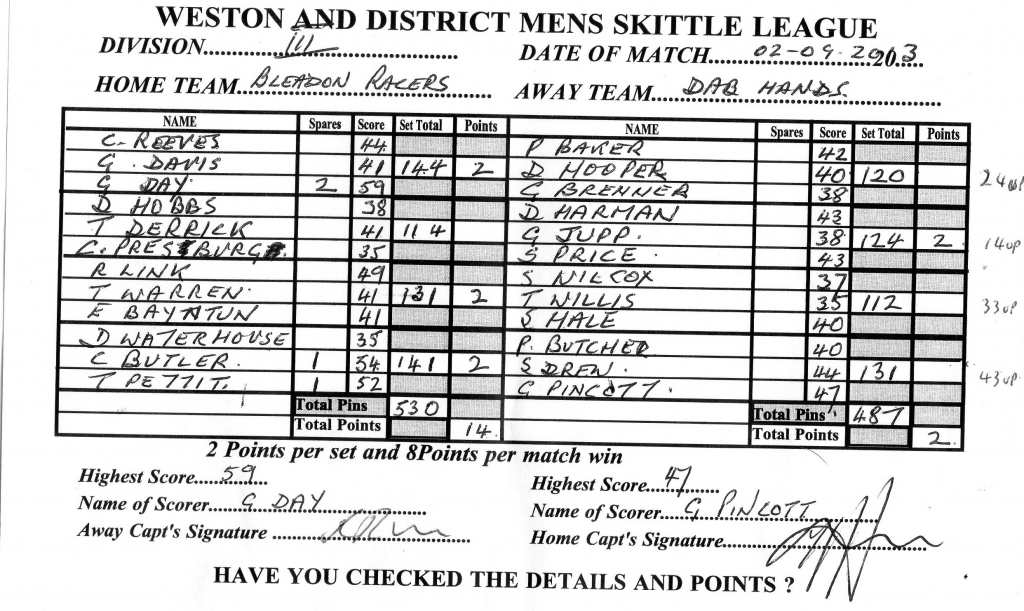 WESTON AND DISTRICT MENS SKITTLE LEAGUE
DIVISION iii DATE OF MATCH 02-09-2013
HOME TEAM BLEADON RACERS AWAY TEAM DAB HANDS
NAME Spares Score Set Total Points NAME Spares Score Set Total Points
C. REEVES 44 P BAKER 42
G. DAVIS 41 144 2 D HOOPER 40 120 24 up
G DAY 2 59 G BRENNER 38
D HOBBS 38 D HARMAN 43
T DERRICK 41 114 G JUPP. 38 124 2 14 up
C. PRESBURG 35 S PRICE. 43
R LINK 49 S WILCOX 37
T WARREN. 41 131 2 T WILLIS 35 112 33 up
E BAYNTUN 41 S HALE 40
D WATERHOUSE 35 P. BUTCHER 40
C BUTLER. 1 54 141 2 S DREW. 44 131 43 up
T PETTIT. 1 52 G PINCOTT. 47
Total Pins 530 Total Pins 487
Total Points 14. Total Points 2.
2 Points per set and 8Points per match win
Highest Score 59 Highest Score 47
Name of Scorer G DAY Name of Scorer G PINCOTT
Away Capt's Signature Home Capt's Signature
HAVE YOU CHECKED THE DETAILS AND POINTS ?